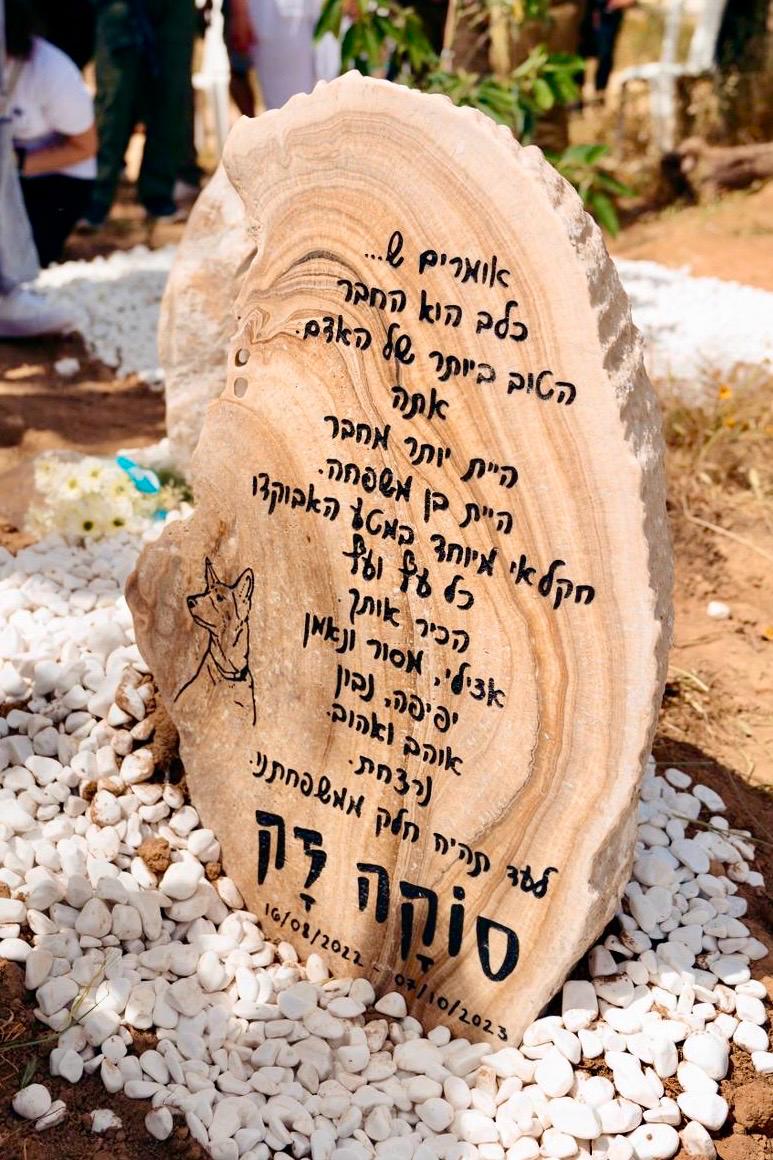 אומרים ש...
כלב הוא החבר
הטוב ביותר של האדם.
אתה
היית יותר מחבר
היית בן משפחה.
חקלאי מיוחד במטע האבוקדו
כל עץ ועץ
הכיר אותך.
אצילי, מסור ונאמן
יפיפה, נבון
אוהב ואהוב.
נרצחת.
לעד תהיה חלק ממשפחתנו.
סוֹקָה דָּק
16/08/2022 - 07/10/2023